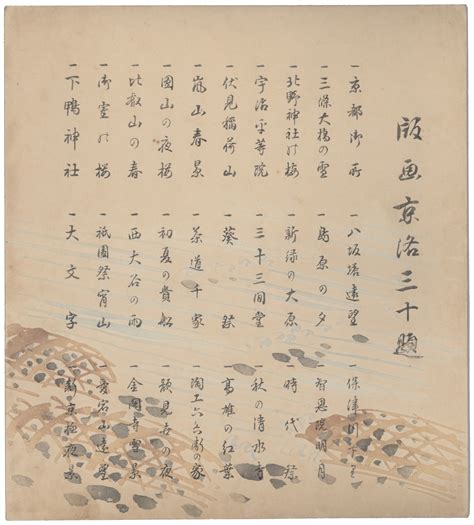 版画京洛三十題
一京都御所
一三條大橋の雪
一北野神社の梅
一宇治平等院
一伏見稲荷山
一嵐山春景
一圓山の夜桜
一比叡山の春
一御室の桜
一下鴨神社
一八坂塔遠望
一島原の夕
一新緑の大原
一三十三間堂
一葵祭
一茶道千家
一初夏の貴船
一西大谷の雨
一祇園祭宵山
一大文字
一保津川下り
一智恩院明月
一時代祭
一秋の清水寺
一高雄の紅葉
一陶工六兵衛の家
一顔見世の夜
一金閣寺雪景
一愛宕山遠望
一新京極夜景